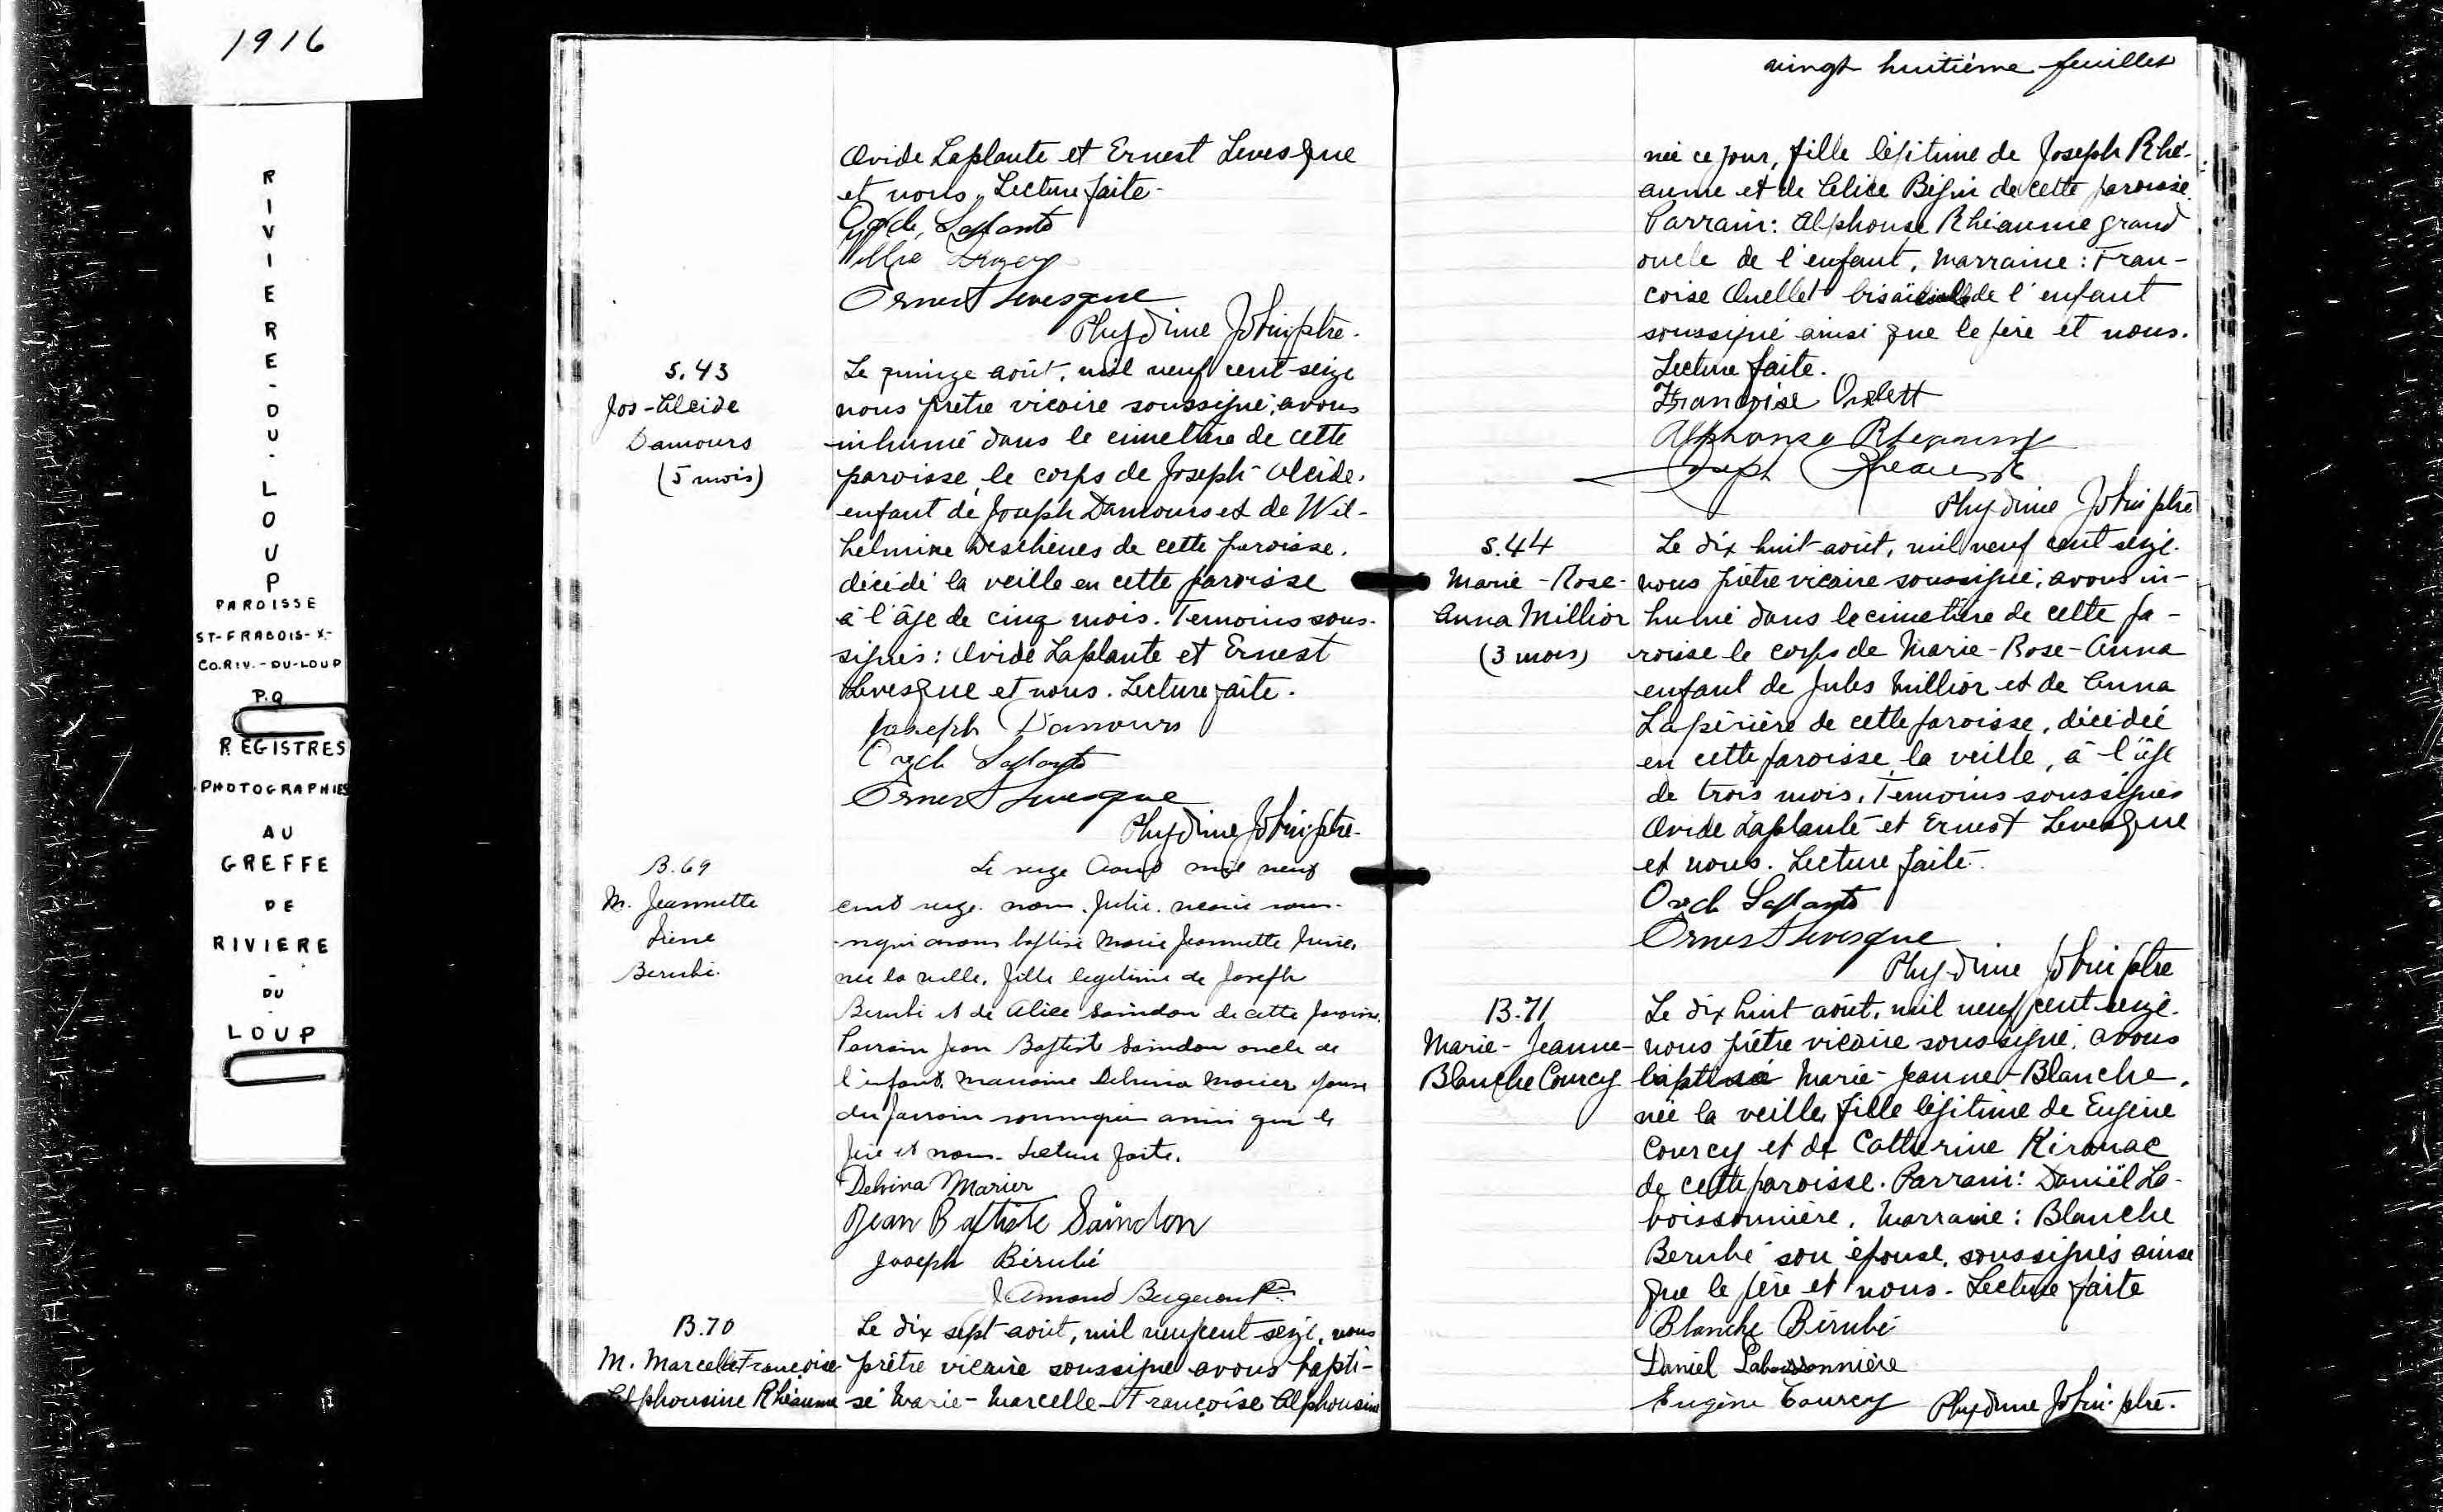 1916
RIVIERE-DU-LOUP
PAROISSE
ST-FRABOIS-X-
CO.RIV.-DU-LOUP
P.Q
REGISTRES
PHOTOGRAPHIES
AU
GREFFE
DE
RIVIERE
-
DU
-
LOUP
Ovide Laplante et Ernest Levesque
et nous. Lecture faite.
Ernest Levesque
ptre.
S.43
Jos-Alcide
Damours
(5 mois)
Le quinze août, mil neuf cent seize
nous prêtre vicaire soussigné, avons
inhumé dans le cimetière de cette
paroisse, le corps de Joseph-Alcide,
enfant de Joseph Damours et de Wil-
helmine Deschènes de cette paroisse,
décédé la veille en cette paroisse
à l'âge de cinq mois. Temoins sous-
signés: Ovide Laplante et Ernest
Levesque et nous. Lecture faite.
Joseph Damours
Ernest Levesque
ptre.
B.69
M. Jeannette
Irène
Berubé.
Le seize Aout mil neuf
cent seize. nous. vicaire sous-
signé avons baptisé Marie Jeannette Irène,
née la veille, fille légitime de Joseph
Berubé et de Alice Saindon de cette paroisse.
Parrain Jean Baptiste Saindon oncle de
l'enfant. Marraine Delvina Morier épouse
du parrain soussignés ainsi que le
père et nous. Lecture faite.
Delvina Marier
Jean Baptiste Saindon
Joseph Bérubé
J Amond Bergeron Ptre
B.70
M. Marcelle Françoise
Alphonsine Rhéaume
Le dix sept août, mil neuf cent seize, nous
prêtre vicaire soussigné avons bapti-
sé Marie-Marcelle-Françoise Alphonsine
vingt huitième feuillet
née ce jour, fille légitime de Joseph Rhé-
aume et de Alice Bégin de cette paroisse.
Parrain: Alphonse Rhéaume grand
oncle de l'enfant, Marraine: Fran-
coise Ouellet bisaïeulle de l'enfant
soussigné ainsi que le père et nous.
Lecture faite.
Françoise
Alphonse Rheaume
Joseph Rheaume
ptre
S.44
Marie-Rose-
Anna Millior
(3 mois)
Le dix huit août, mil neuf cent seize.
nous prêtre vicaire soussigné, avons in-
humé dans le cimetière de cette pa-
roisse le corps de Marie-Rose-Anna
enfant de Jules Millior et de Anna
Lapérière de cette paroisse, décédée
en cette paroisse, la veille, à l'âge
de trois mois, Temoins soussignés
Ovide Laplante et Ernest Levesque
et nous. Lecture faite.
Ernest Levesque
ptre
B.71
Marie-Jeanne-
Blanche Courcy
Le dix huit août, mil neuf cent seize.
nous prêtre vicaire soussigné, avons
baptisé Marie-Jeanne-Blanche,
née la veille, fille légitime de Eugène
Courcy et de Catherine Kirouac
de cette paroisse. Parrain: Daniël La-
boissonnière. Marraine: Blanche
Berubé son épouse, soussignés ainsi
que le père et nous. Lecture faite
Blanche Bérubé
Daniel Laboissonnière
Eugène Courcy
ptre.